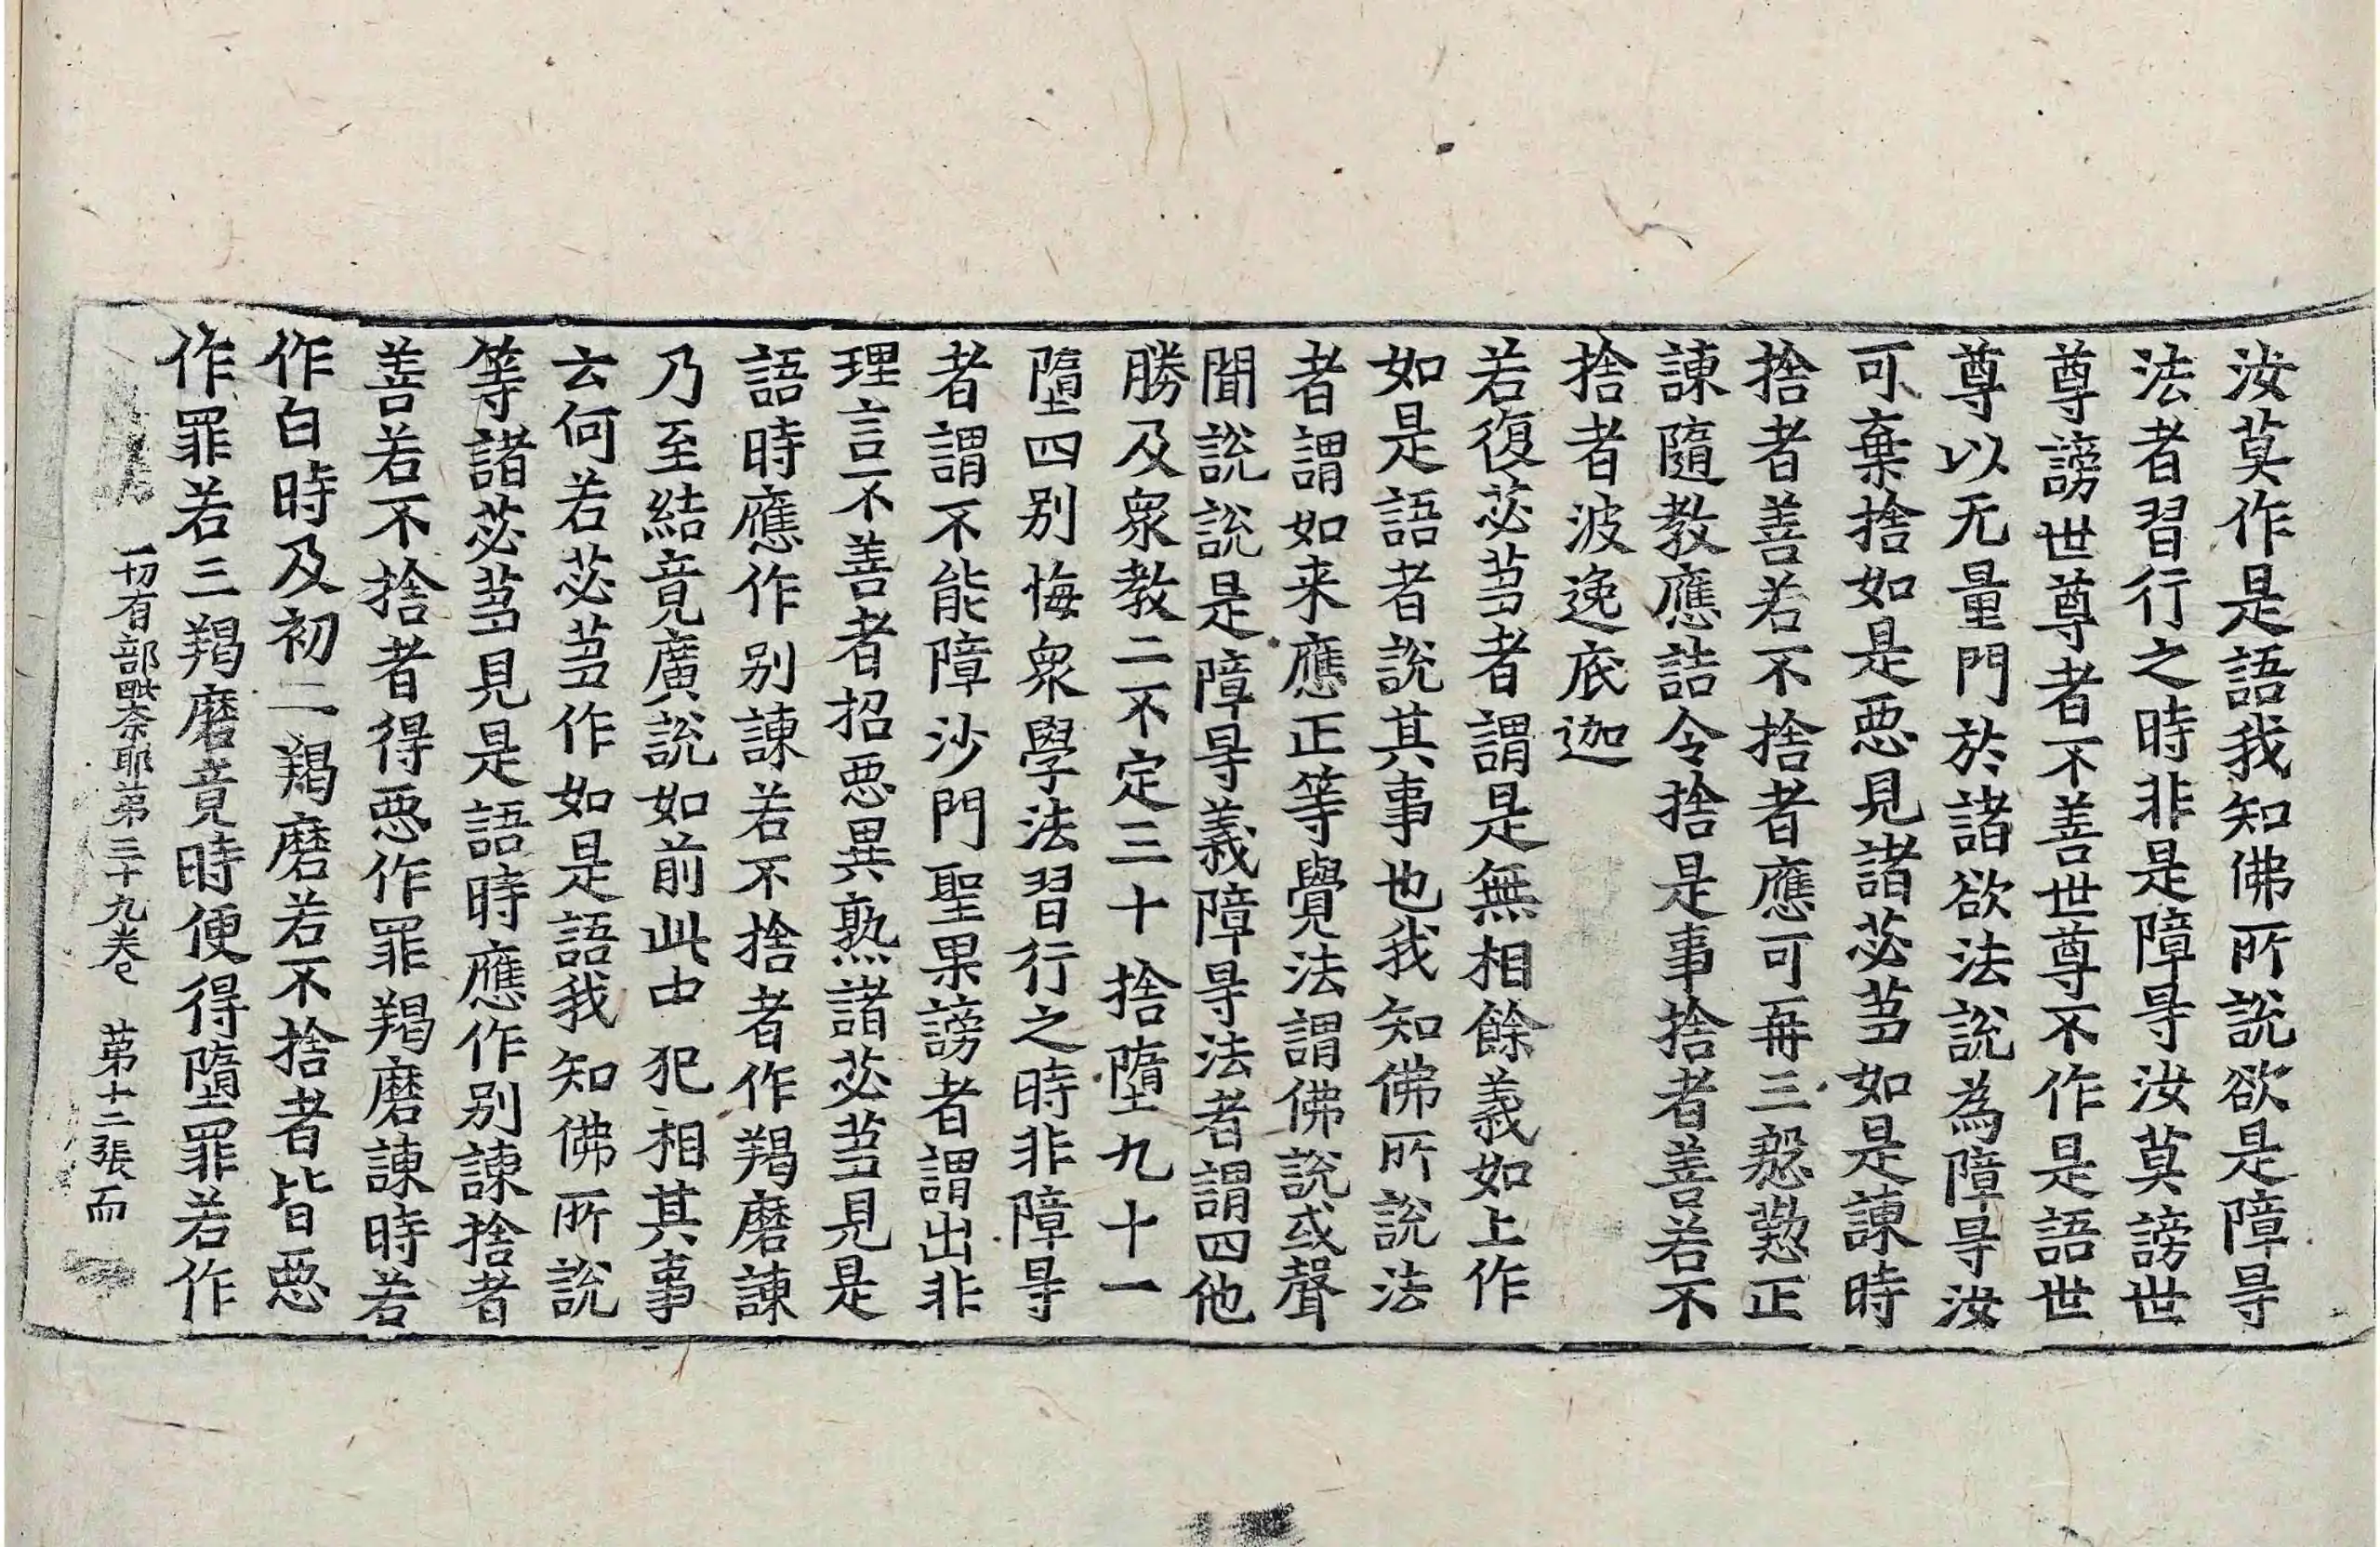 汝莫作是語我知佛所說欲是障㝵
法者習行之時非是障㝵汝莫謗世
尊謗世尊者不善世尊不作是語世
尊以无量門於諸欲法說為障㝵汝
可棄捨如是惡見諸苾芻如是諫時
捨者善若不捨者應可再三慇懃正
諫隨教應詰令捨是事捨者善若不
捨者波逸底迦
若復苾芻者謂是無相餘義如上作
如是語者說其事也我知佛所說法
者謂如来應正等覺法謂佛說或聲
聞說說是障㝵義障㝵法者謂四他
勝及衆教二不定三十捨墮九十一
墮四别悔衆學法習行之時非障㝵
者謂不能障沙門聖果謗者謂出非
理言不善者招惡異熟諸苾芻見是
語時應作别諫若不捨者作羯磨諫
乃至結竟廣說如前此中犯相其事
云何若苾芻作如是語我知佛所說
等諸苾芻見是語時應作别諫捨者
善若不捨者得惡作罪羯磨諫時若
作白時及初二羯磨若不捨者皆惡
作罪若三羯磨竟時便得墮罪若作
一切有部毗奈耶第三十九卷 第十二張 而